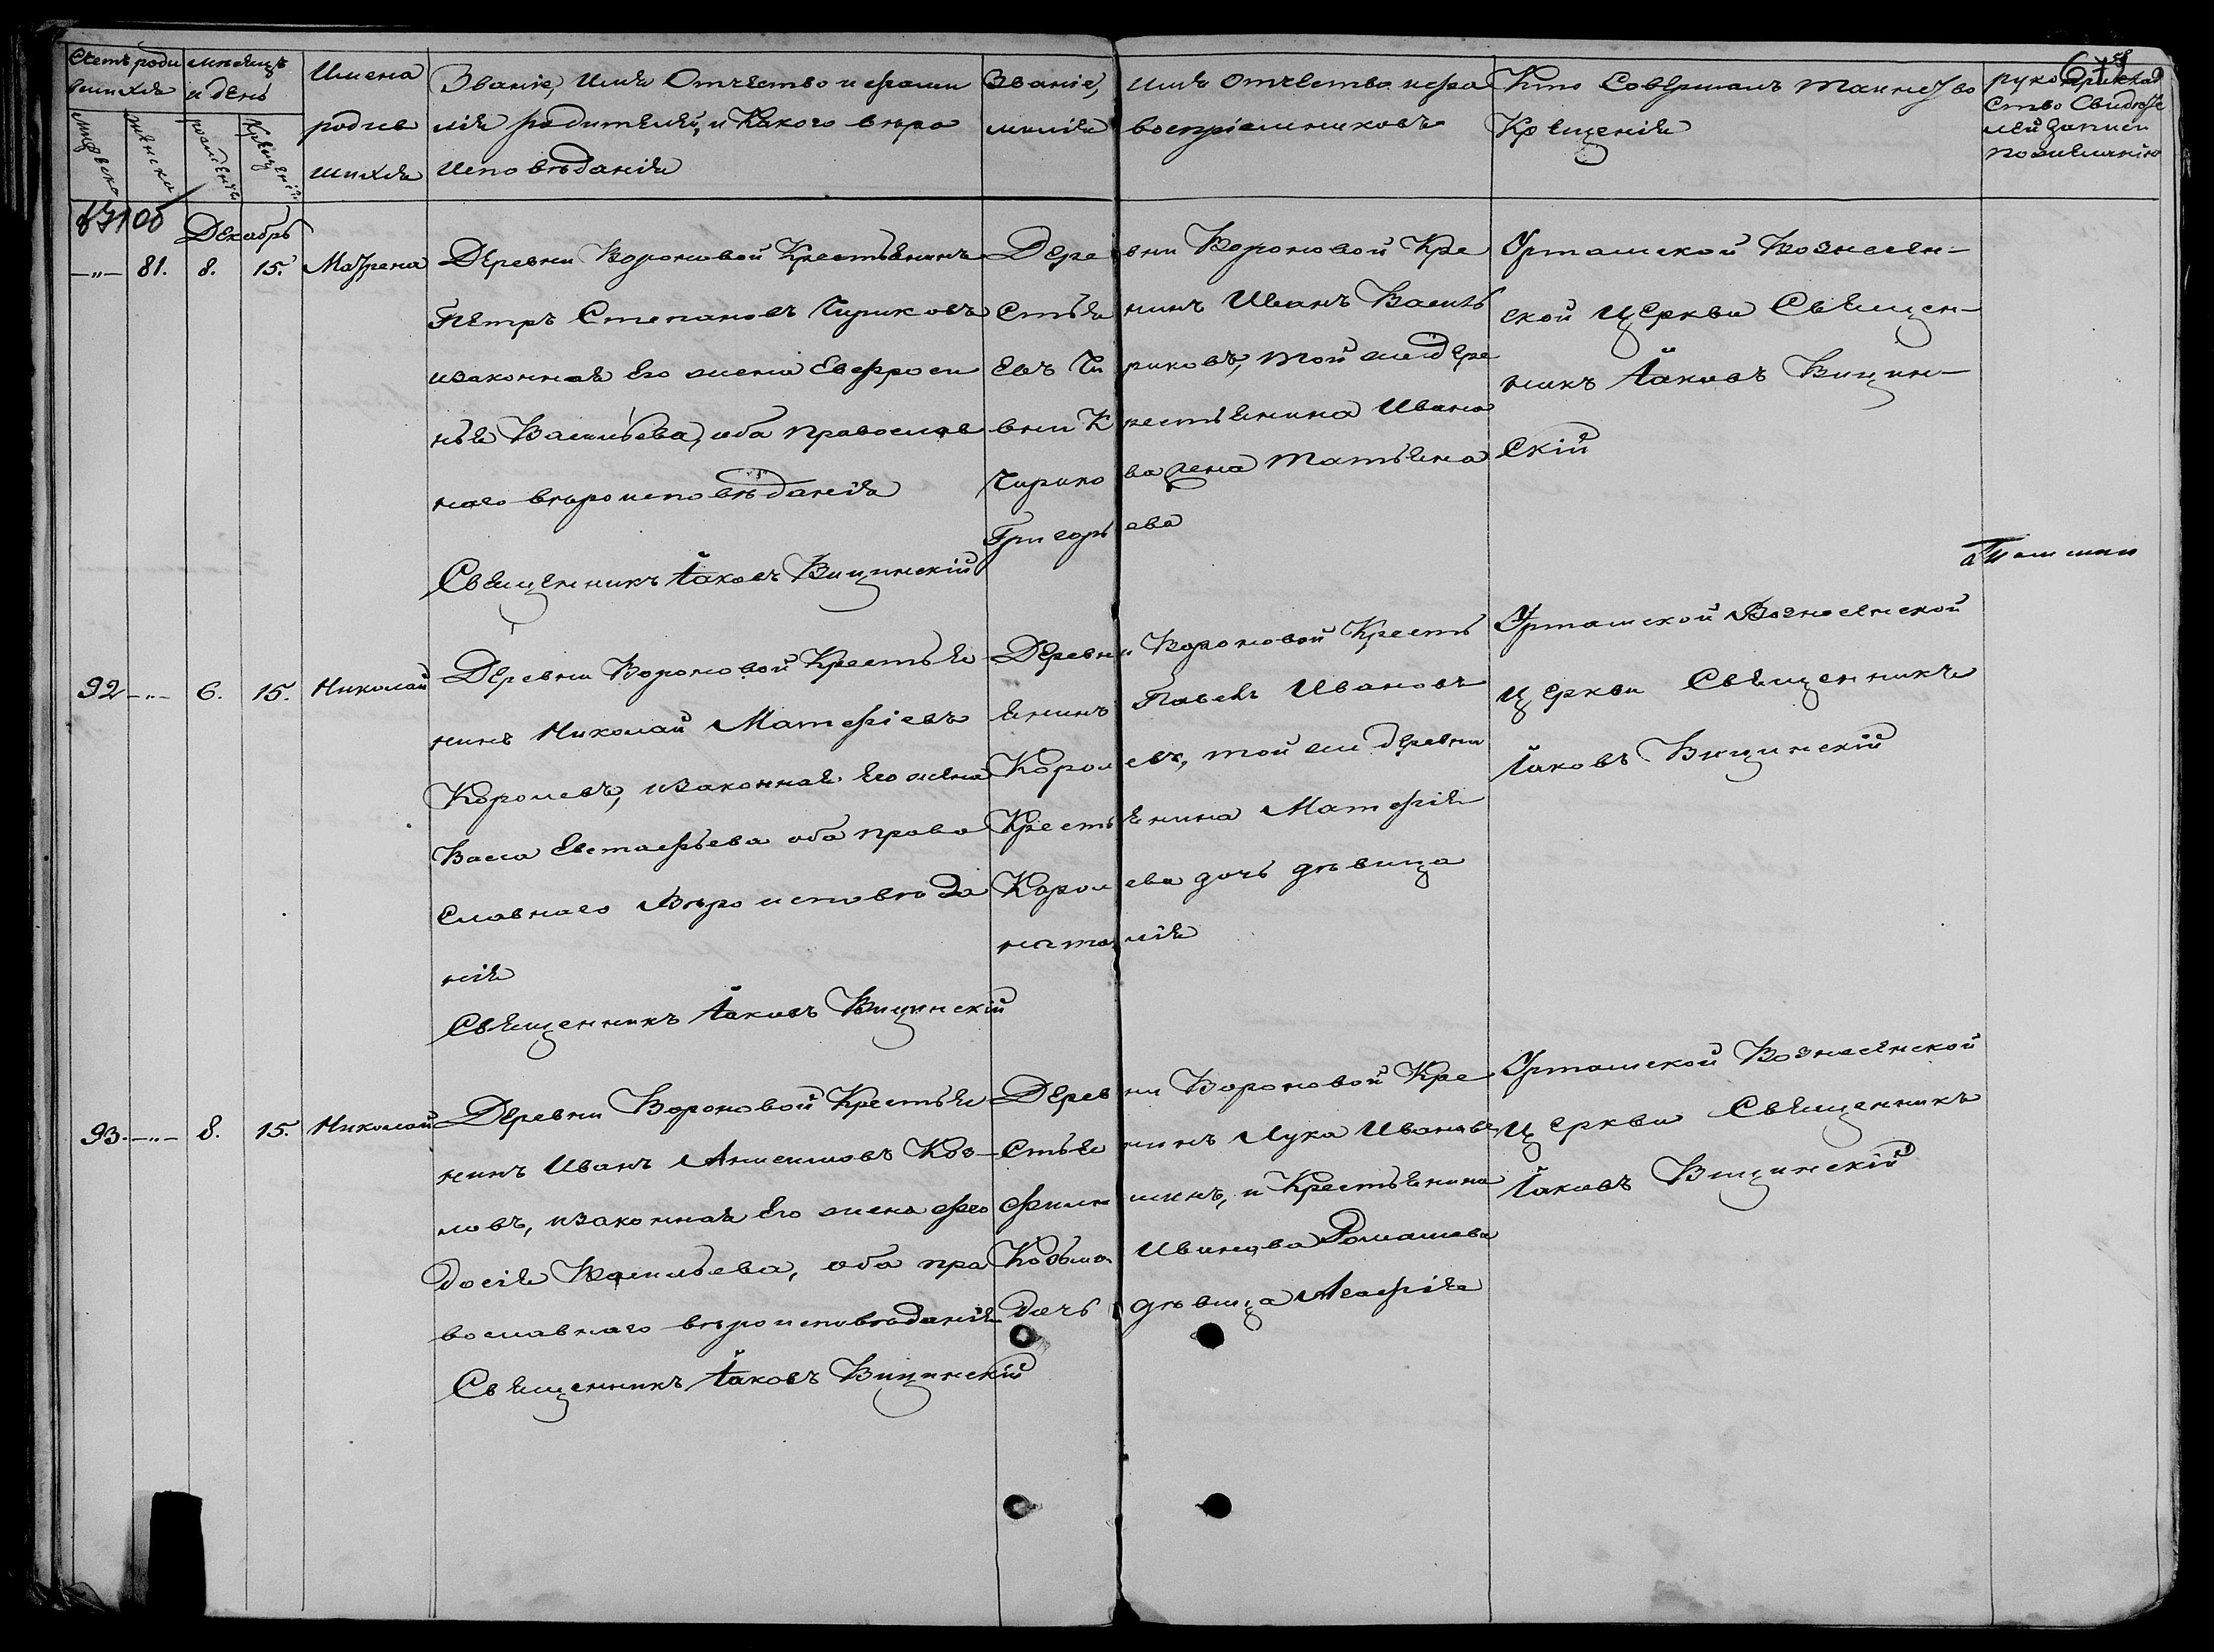 Счетъ роди
вшихся
мѣсяцъ
и день
Имена
родив
шихся
Званіе, Имя Отчество и фами
лія родителей, и Какого вѣро
исповѣданія
Званіе, имя отчество и фа
милія воспріемниковъ
Кто Совершалъ таинство
Крещенія
рукоприклад
ство Свидѣте
лей записи
по желанію
Мужеска
женска
рожденія
Крещенія
Декабрь
—"— 81. 8. 15. Матрена
Деревни Вороновой Крестьянинъ
Петръ Степановъ Чириковъ
изаконная Его жена Евфроси
нья Васильева, оба православ
наго вѣроисповѣданія
Священникъ Іаковъ Вицинскій
Деревни Вороновой Кре
стьянинъ Иванъ Василь
евъ Чириковъ, той же дере
вни Крестьянина Ивана
Чирикова жена Татьяна
Григорьева
Урташской Вознесен-
ской Церкви Священ-
никъ Іаковъ Вицин-
скій
92 —"— 6. 15. Николай
Деревни Вороновой Крестья
нинъ Николай Матфіевъ
Королевъ, изаконная Его жена
Васса Евстафьева оба право
славнаго Вѣроисповѣда
нія
Священникъ Іаковъ Вицинскій
Деревни Вороновой Кресть
янинъ Павелъ Ивановъ
Королевъ, той же деревни
Крестьянина Матфія
Королева дочь дѣвица
наталія
Урташской Вознесенской
Церкви Священникъ
Іаковъ Вицинскій
93. —"— 8. 15. Николай
Деревни Вороновой Крестья
нинъ Иванъ Анисимовъ Коз-
ловъ, изаконная Его жена фео
досія Васильева, оба пра
вославнаго вѣроисповѣданія
Священникъ Іаковъ Вицинскій
Деревни Вороновой Кре
стьянинъ Лука Ивановъ
и Крестьянина
Ивинова Ромашева
дочь дѣвица Агафія
Урташской Вознесенской
Церкви Священникъ
Іаковъ Вицинскій